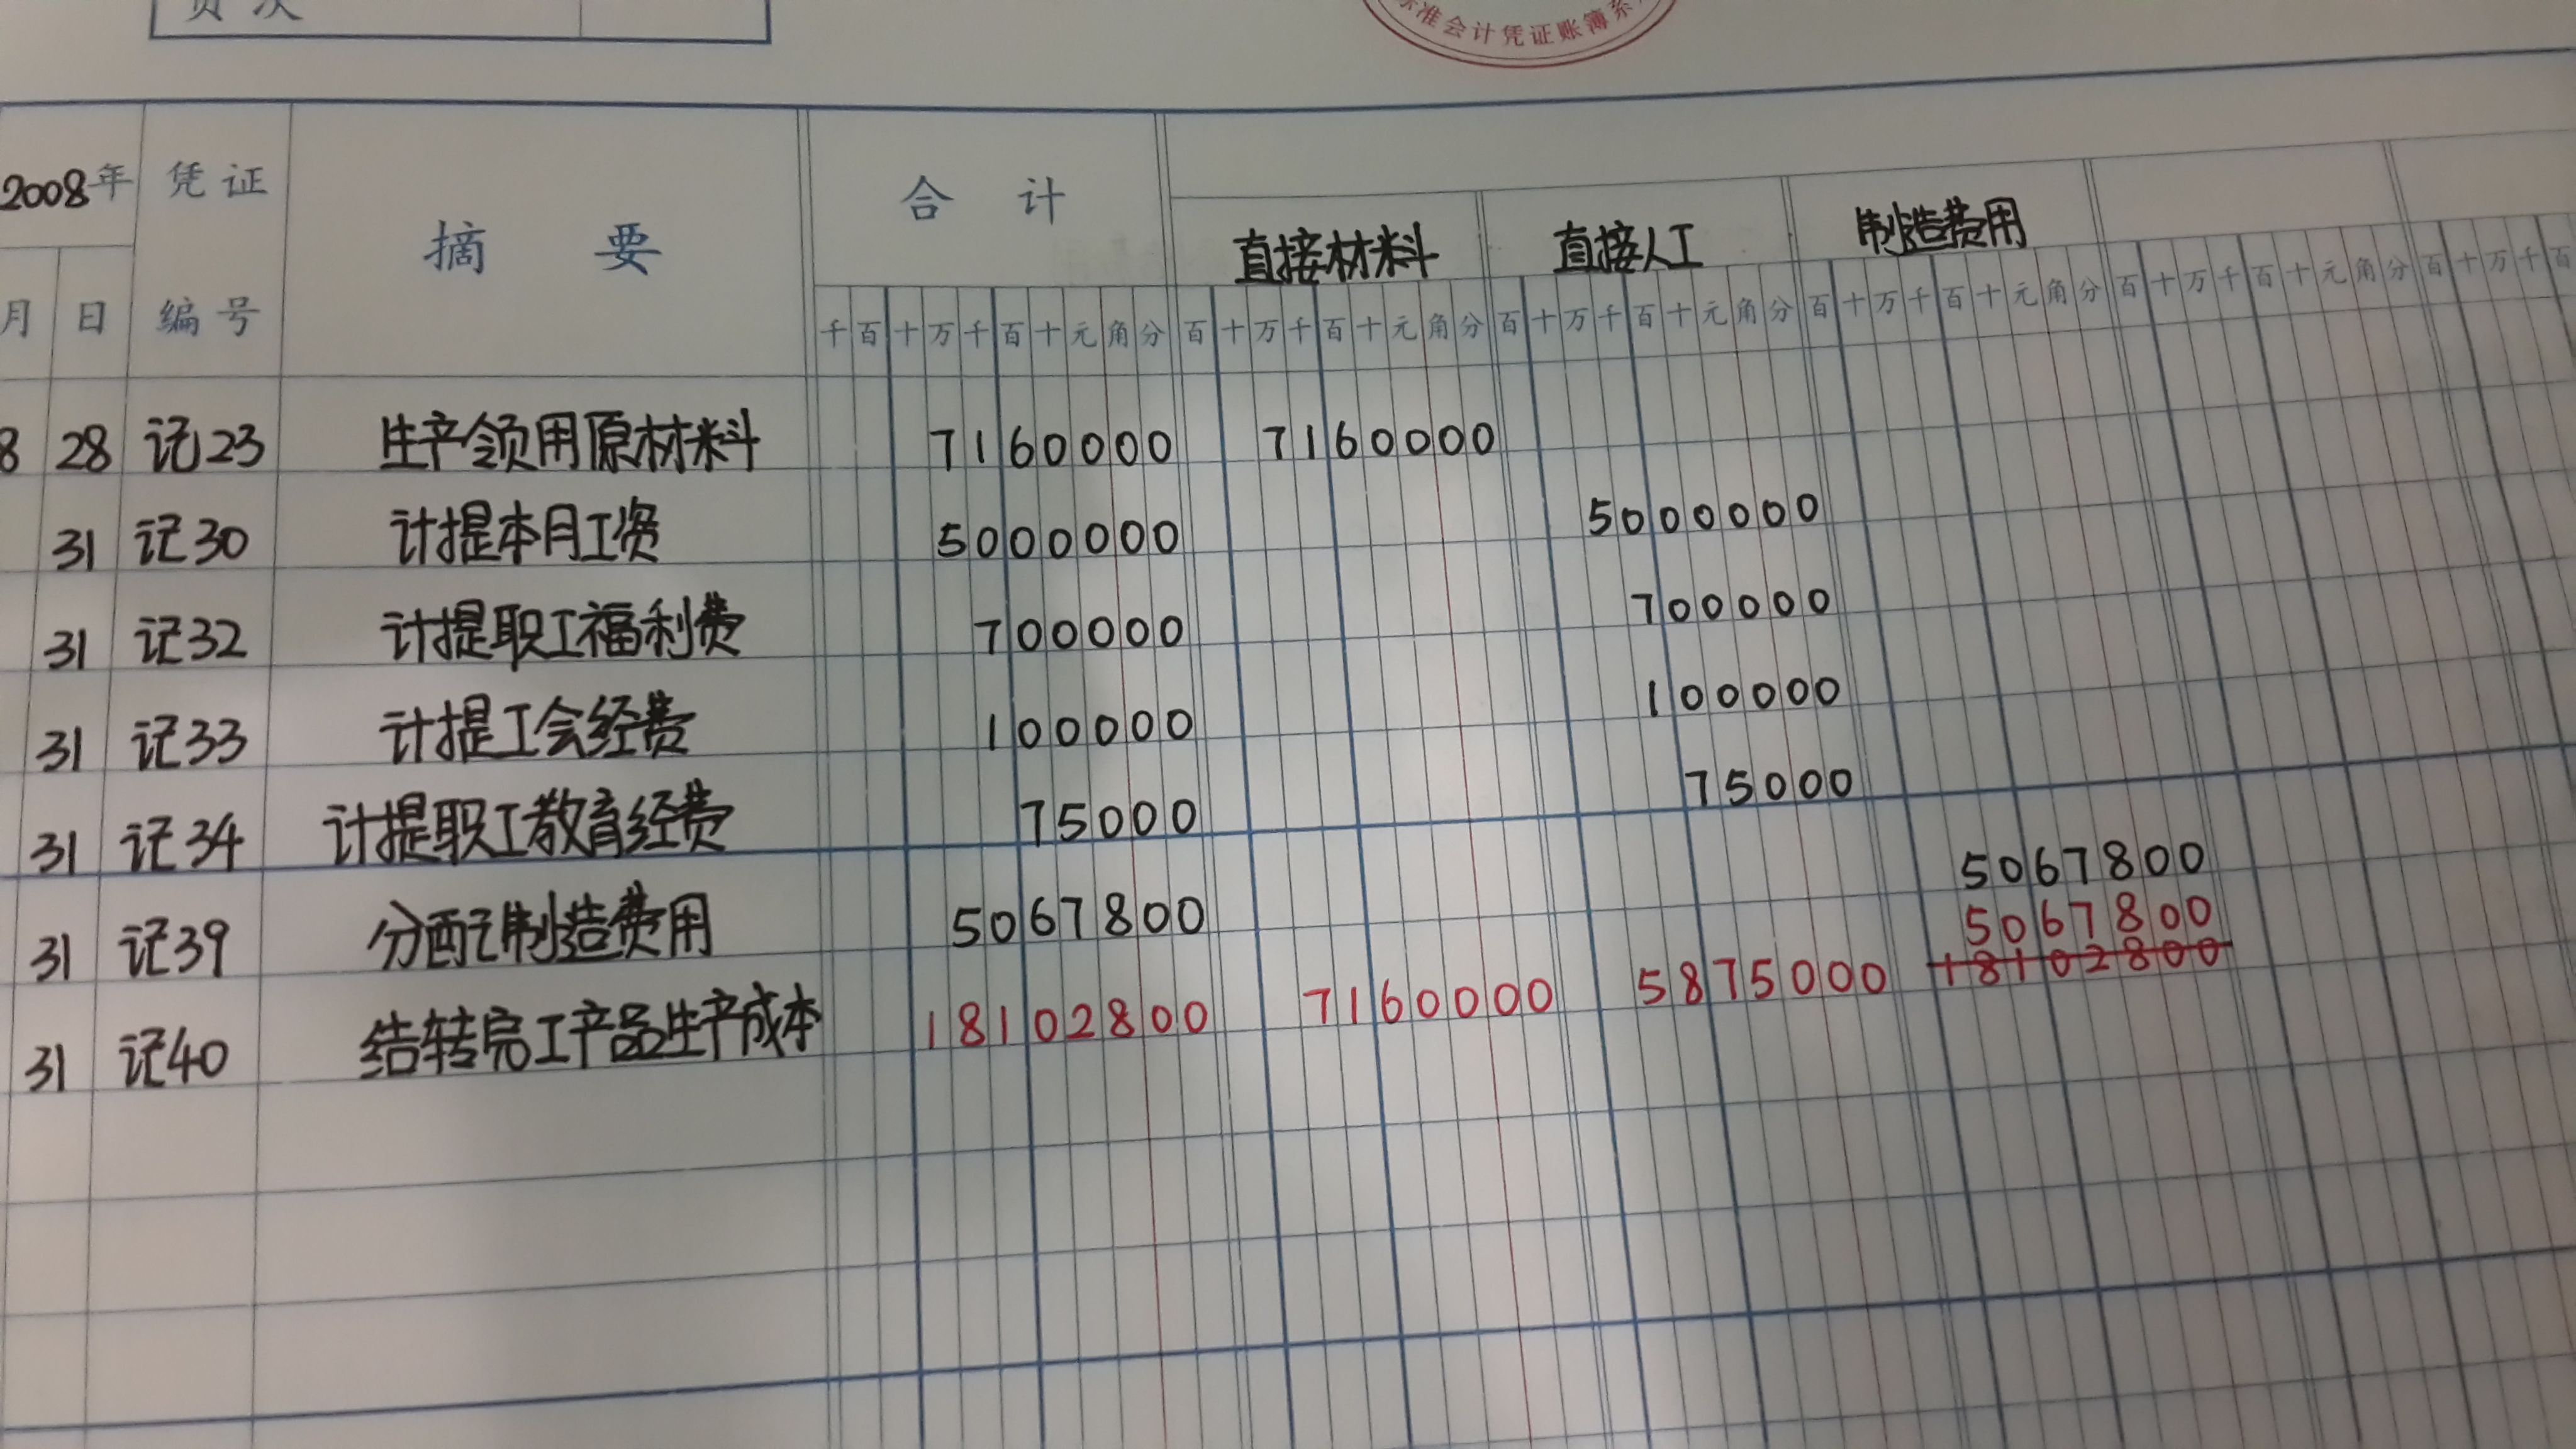 页次
标准会计凭证账簿系
2008年 凭证编号 摘要 合计 直接材料 直接人工 制造费用
月 日 千百十万千百十元角分 百十万千百十元角分 百十万千百十元角分 百十万千百十元角分 百十万千百十元角分 百十万千百
8 28 记23 生产领用原材料 7160000 7160000
31 记30 计提本月工资 5000000 5000000
31 记32 计提职工福利费 700000 700000
31 记33 计提工会经费 100000 100000
31 记34 计提职工教育经费 75000 75000
31 记39 分配制造费用 5067800 5067800
5067800
31 记40 结转完工产品生产成本 18102800 7160000 5875000 18102800